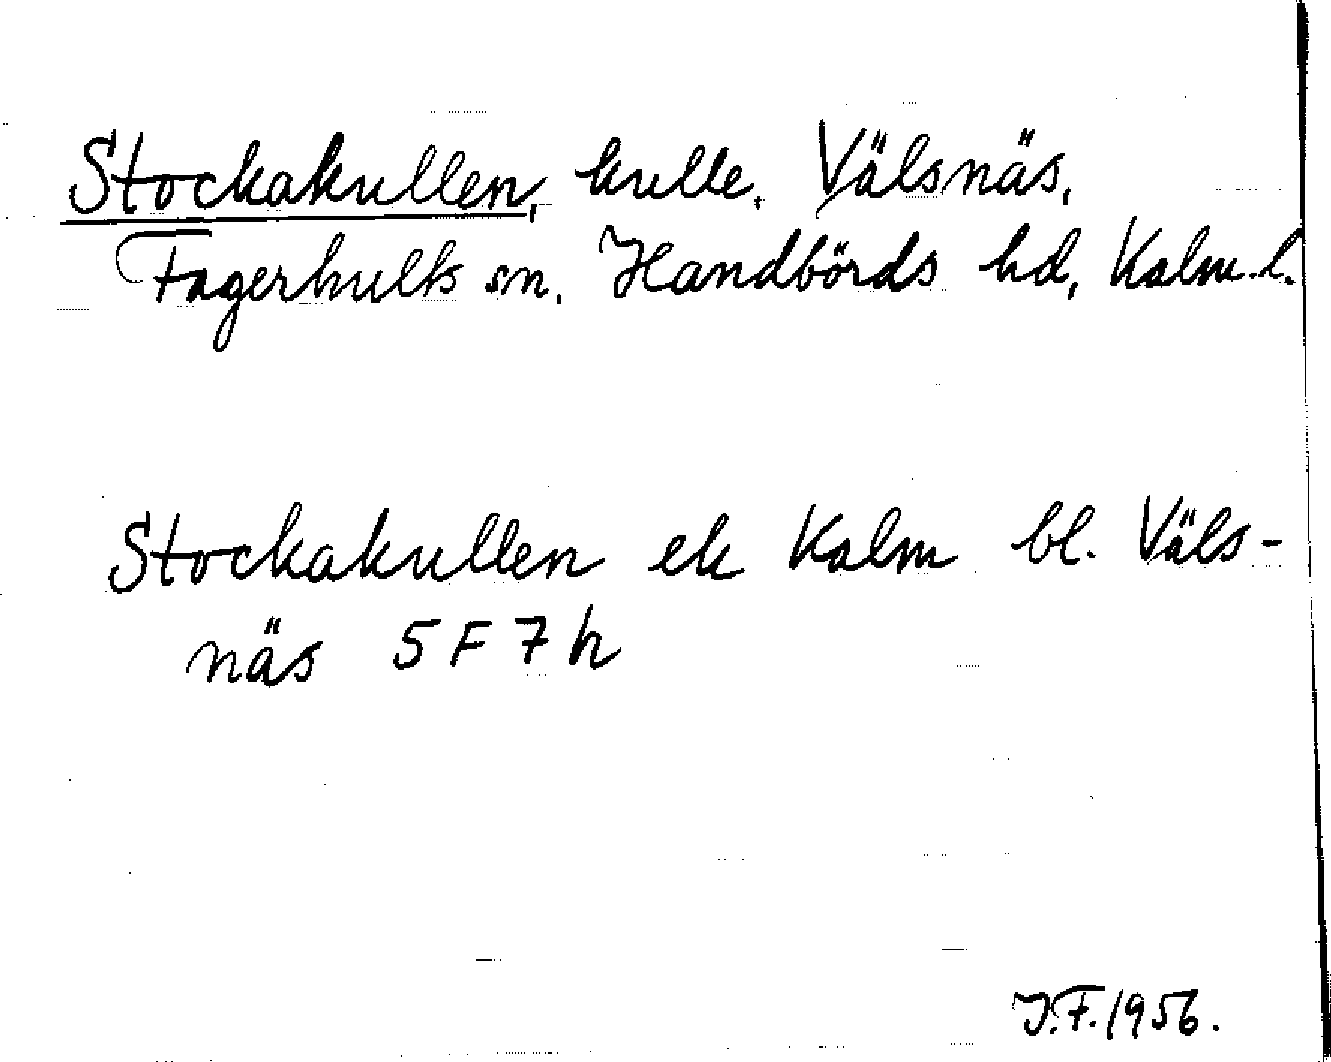 Stockakullen, kulle, Välsnäs,
Fagerhults sn, Handbörds hd, Kalm.l.
Stockakullen ek Kalm bl. Väls-
näs 5F7h
J.F. 1956.